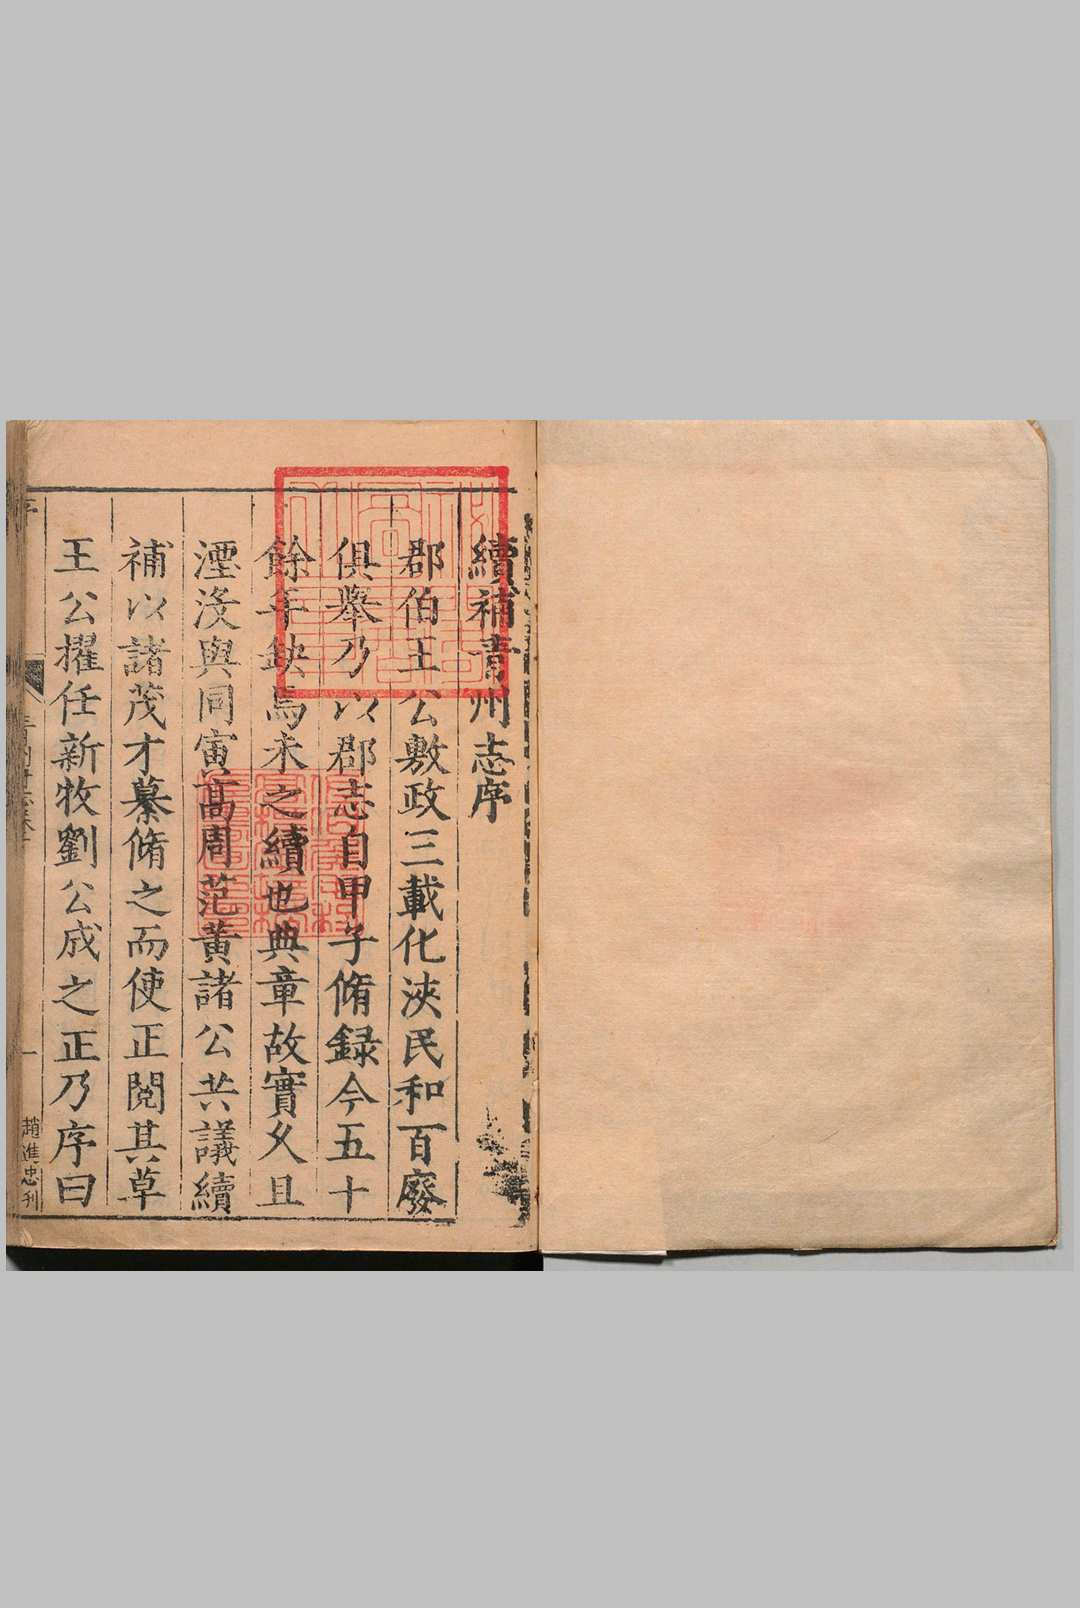 續補青州志序
郡伯王公敷政三載化浹民和百廢
俱舉乃以郡志自甲子脩録今五十
餘年缺焉未之續也典章故實久且
湮没與同寅髙周范黄諸公共議續
補以諸茂才纂脩之而使正閲其草
王公擢任新牧劉公成之正乃序曰
序
一
趙進忠刋